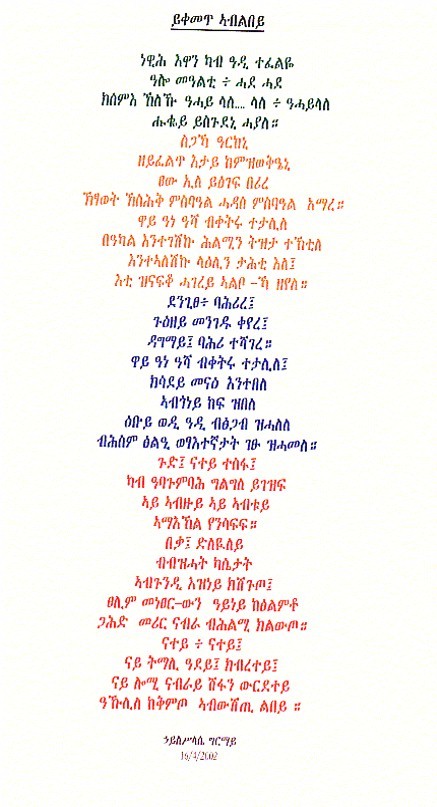 ይቀመጥ ኣብልበይ
ነዊሕ እዋን ካብ ዓዲ ተፈልዬ
ዓሎ መዓልቲ ÷ ሓደ ሓደ
ክሰምእ ኸለኹ ዓሓይ ላለ.... ላለ ÷ ዓሓይላለ
ሑቈይ ይስጉደኒ ሓያለ።
ስጋኻ ዓርክኒ
ዘይፈልጥ እታይ ከምዝወቅዔኒ
ፀው ኢለ ይዕገፍ በሪረ
ኽፃወት ክስሕቅ ምስባዓል ሓዳስ ምስባዓል እማረ።
ዋይ ዓነ ዓሻ ብቀትሩ ተታሊለ
በዓካል እንተገሽኩ ሕልሚን ትዝታ ተኸቲለ
እንተኣለሽኩ ላዕሊን ታሕቲ እለ፤
እቲ ዝናፍቆ ሓገረይ ኣልቦ -ኻ ዘየለ።
ደንጊፀ÷ ባሕሪረ፤
ጉዕዘይ መንገዱ ቀየረ፤
ዳግማይ፤ ባሕሪ ተሻገረ።
ዋይ ዓነ ዓሻ ብቀትሩ ተታሊለ፤
ክሳደይ መናዕ እንተበለ
ኣብጎነይ ከፍ ዝበለ
ዕቡይ ወዲ ዓዲ ብፅጋብ ዝሓለለ
ብሕሰም ፅልዒ ወፃእተኛታት ገፁ ዝሓመለ።
ጉድ፤ ናተይ ተስፋ፤
ካብ ዓባጉምባሕ ግልግለ ይገዝፍ
ኣይ ኣብዙይ ኣይ ኣብቱይ
ኣማእኸል የንሳፍፍ።
በቃ፤ ድለዪለይ
ብብዝሓት ካሴታት
ኣብጉንዲ እዝነይ ክሽጉጦ፤
ፀሊም መነፀር-ውን ዓይነይ ከዕልምቶ
ጋሕድ መሪር ናብራ ብሕልሚ ክልውጦ።
ናተይ ÷ ናተይ፤
ናይ ትማሊ ዓደይ፤ ክብረተይ፤
ናይ ሎሚ ናብራይ ሽፋን ውርደተይ
ዓኹሊለ ከቅምጦ ኣብውሽጢ ልበይ ።
ኃይለሥላሴ ግርማይ
16/4/2002